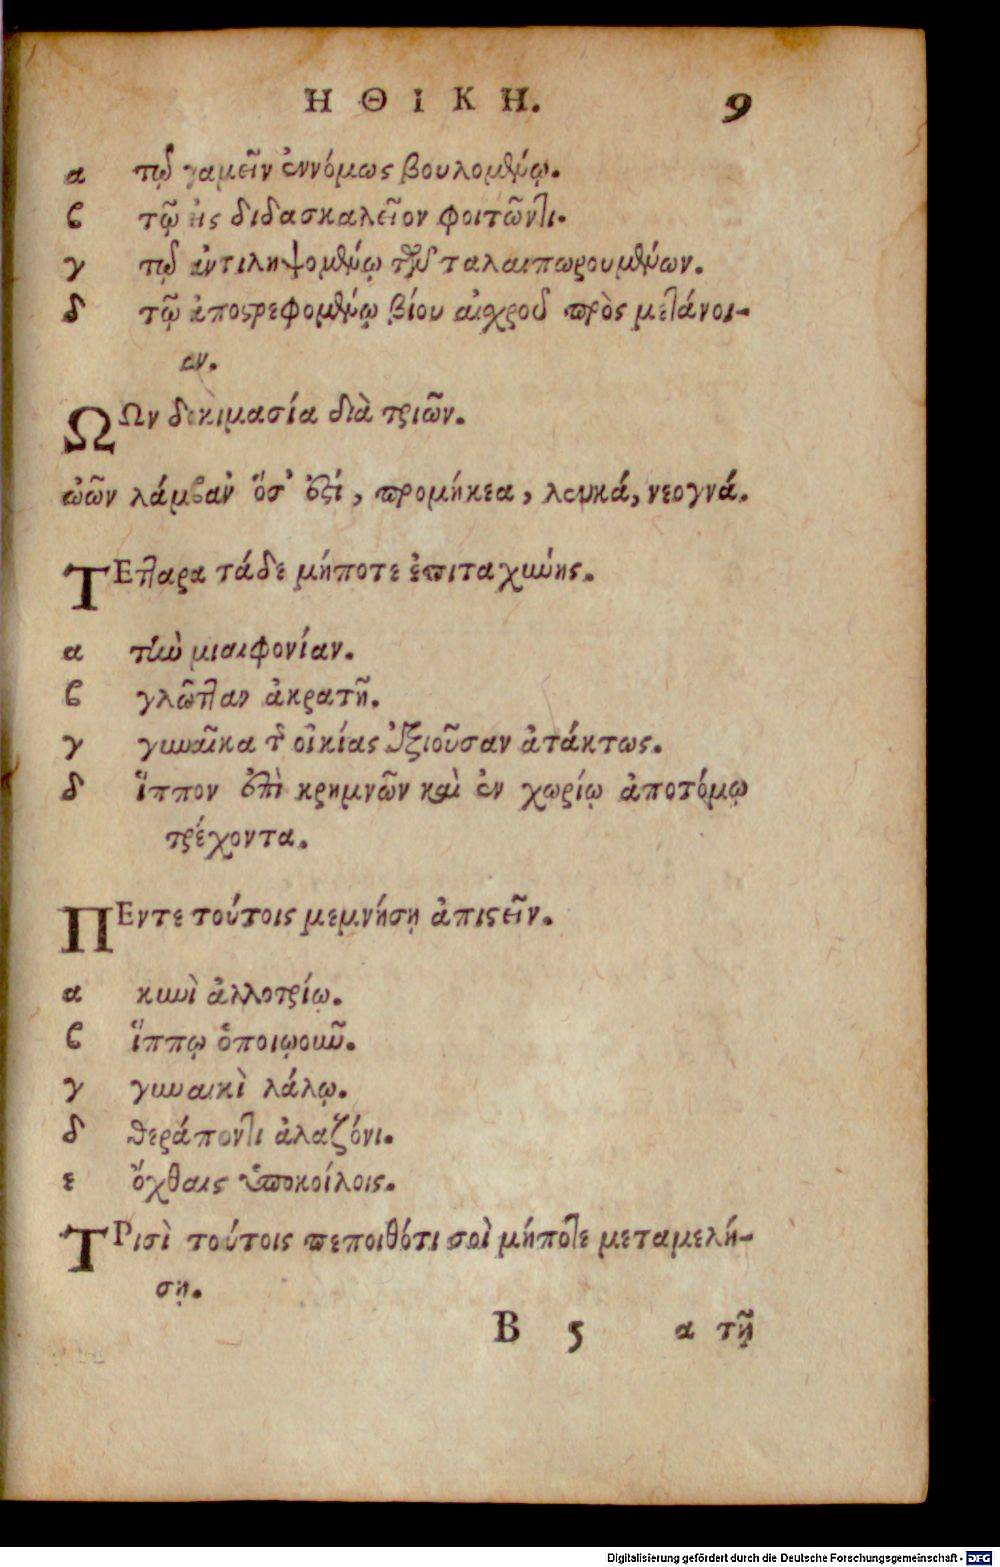 ΗΘΙΚΗ. 9
α τῷ γαμεῖν ἐννόμως βουλομένῳ.
ϐ τῷ εἰς διδασκαλεῖον φοιτῶντι.
γ τῷ ἀντιληψομένῳ τῶν ταλαιπωρουμένων.
δ τῷ ἀποστρεφομένῳ βίου αἰσχροῦ πρὸς μετάνοι-
αν.
ΩΩν δοκιμασία διὰ τριῶν.
ὠῶν λάμβαν' ὅσ' ἐστί, προμήκεα, λευκά, νεογνά.
ΤΕτταρα τάδε μήποτε ἐπιταχύνῃς.
α τὴν μιαιφονίαν.
ϐ γλῶτταν ἀκρατῆ.
γ γυναῖκα τῆς οἰκίας ἐξιοῦσαν ἀτάκτως.
δ ἵππον ἐπὶ κρημνῶν καὶ ἐν χωρίῳ ἀποτόμῳ
τρέχοντα.
ΠΕντε τούτοις μεμνήσῃ ἀπιστεῖν.
α κυνὶ ἀλλοτρίῳ.
ϐ ἵππῳ ὁποιῳοῦν.
γ γυναικὶ λάλῳ.
δ θεράποντι ἀλαζόνι.
ε ὄχθαις ὑποκοίλοις.
ΤΡισὶ τούτοις πεποιθότι σοὶ μήποτε μεταμελή-
σῃ.
Β 5 α τῇ
Digitalisierung gefördert durch die Deutsche Forschungsgemeinschaft - DFG